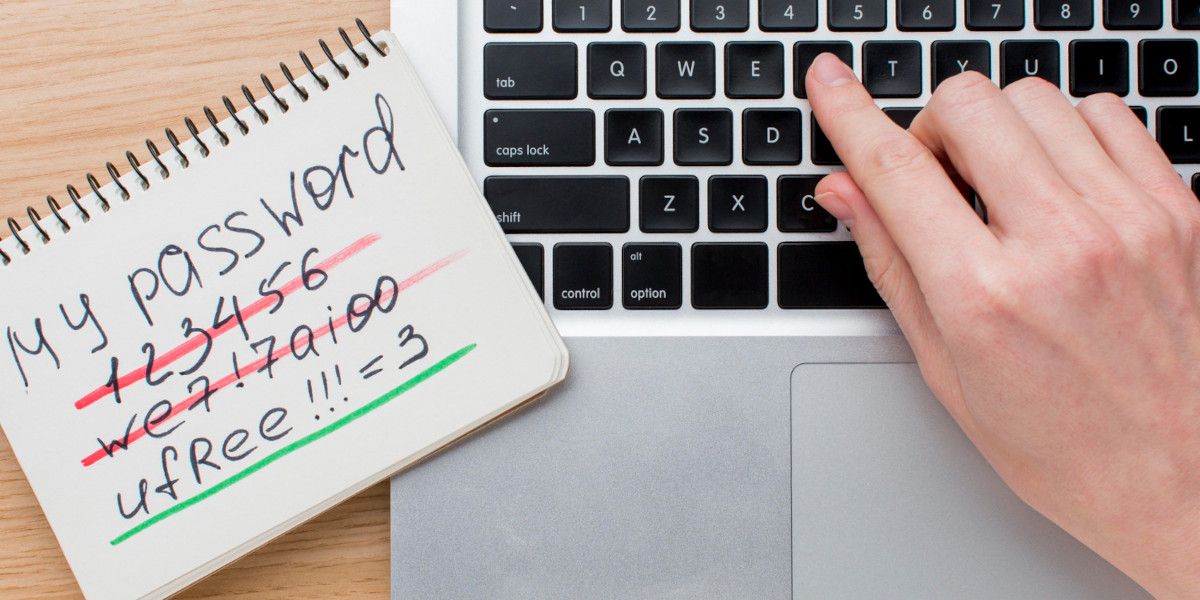 My password
123456
we7!7aioo
ufRee!!!=3
` 1 2 3 4 5 6 7 8 9
tab Q W E T Y U I O
caps lock A S D L
shift Z X C
control alt option